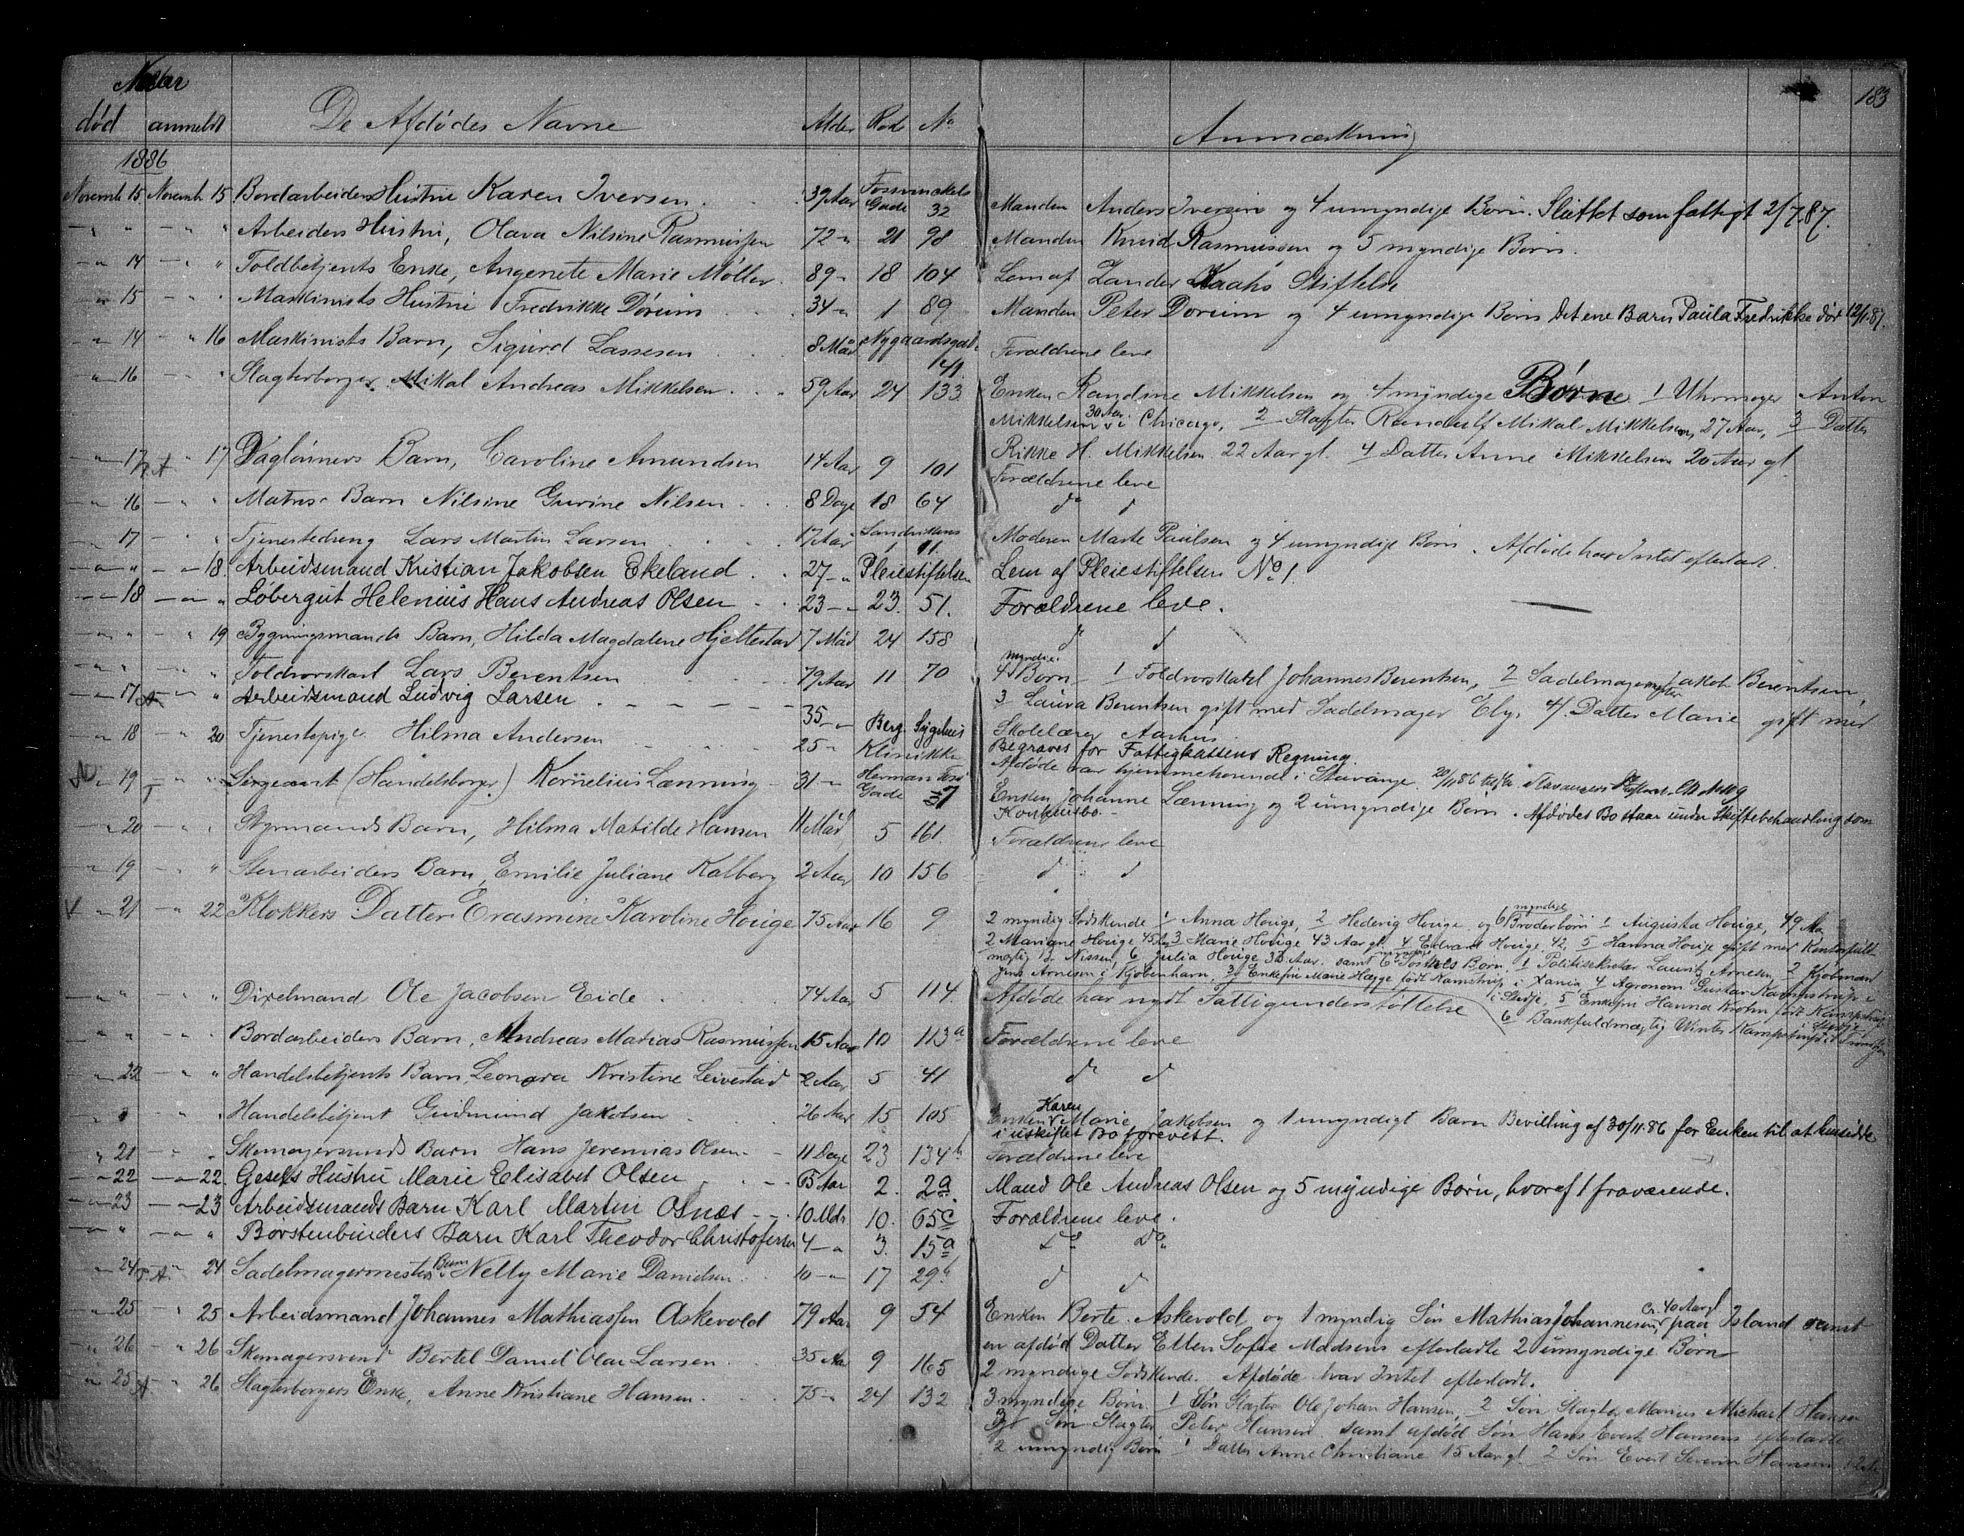 183
Naar
død anmeldt De Afdødes Navne Alder Rode No Anmærkning
1886
Novemb 15 Novemb 15 Bordarbeiders Hustru Karen Iversen . . 39 Aar Fossvinckels Gade 32 Manden Anders Iversen og 4 umyndige Børn. Sluttet som fattigt 2/7 87.
" " - " " Arbeiders Hustru, Olava Nilsine Rasmussen 72 " 21 98 Manden Knud Rasmussen og 5 myndige Børn.
" 14 - " " Toldbetjents Enke, Angenete Marie Møller. 89 " 18 104 Lem af Zander Kaahs Stiftelse
" 15 - " " Maskinists Hustru Fredrikke Døreim . . 34 " 1 89 Manden Peter Doreim og 4 umyndige Børn det ene Barn Paula Fredrikke død 12/1 87.
" 14 - " 16 Maskinists Barn, Sigurd Lassesen 8 Mdr Nygaardsgad 141 Forældrene leve
" 16 " Slagterborger Mikal Andreas Mikkelsen . . 59 Aar 24 133 Enken Randine Mikkelsen og 4 myndige Børn 1 Uhrmager Anton
Mikkelsen 30 Aar i Chicago, 2 Slagter Randulf Mikal Mikkelsen, 27 Aar, 3 Datter
Rikke H. Mikkelsen 22 Aar gl. 4 Datter Anne Mikkelsen 20 Aar gl
" 17 - " 17 Dagløinners Barn, Caroline Amundsen 14 Aar 9 101 Forældrene leve
" 16 - " " Matrs Barn Nilsine Gurine Nilsen . . 8 Dage 18 64 do d
" 17 - " " Tjenestedreng Lars Martin Larsen . . 17 Aar Sandvikens 11 Moderen Marte Paulsen og 4 umyndige Børn . Afdøde har Intet efterladt.
" " - " 18. Arbeidsmand Kristian Jakobsen Ekeland . . 27 - " Pleiestiftelsen Lem af Pleiestiftelsen No 1.
" 18 - " " Løbergut Helenius Hans Andreas Olsen . . 23 - " 23. 51. Forældrene leve.
" " - " 19 Bygningsmands Barn, Hilda Magdalene Hjellestad 7 Mdr 24 158 do d
" " - " " Toldrorskarl Lars Berentsen . . 79 Aar 11 70 4 myndige Børn - 1 Toldrorskarl Johannes Berentsen, 2 Sadelmagermester Jakob Berentsen,
3 Laura Berentsen gift med Sadelmager Eby, 4. Datter Marie gift med
Skolelærer Aarhus.
" 17 - " " Arbeidsmand Ludvig Larsen . - - - 35 - " Berg. Sygehus Begraves for Fattigkassens Regning.
" 18 - " 20 Tjenestepige Hilma Andersen 25 " Klinikke Afdøde var hjemmehørende i Stavanger.
" 19 - " " Sergeant (Handelsborger) Kornelius Lænning 31 - " Herman Foss Gade 37 Enken Johanne Lænning og 2 umyndige Børn . Afdødes Bo staar under Skiftebehandling som
Konkursbo -
" 20 - " " Styrmands Barn, Hilma Matilde Hansen 11 Mdr 5 161. Forældrene leve
" 19 - " " Stenarbeiders Barn, Emilie Juliane Kalberg 2 Aar 10 156 d d
" 21 - " 22 Klokkers Datter Erasmine Karoline Houge 75 Aar 16 9 2 myndig Sødskende 1 Anna Houge, 2 Hedevig Houge og 6 myndige Broderbørn 1 Augusta Houge, 49 Aar
2 Mariane Houge 45 Aar 3 Marie Houge 43 Aar gl. 4 Edvard Houge 42, 5 Hanna Houge gift med Kontorfuld-
mægtig Nissen, 6 Julia Houge 3 Aar. samt 6 Børn. 1 Politisekretær Lauritz Arnesen, 2 Kjøbmand
Jens Arnesen i Kjøbenhavn, 3 Enkefru Marie Hagge født Kamstrup i Xania, 4 Agronom Gustav Kamstrup i
i Stedje, 5 Enkefru Hanna Krohn født Kamstrup i Stedje
6 Bankfuldmægtig Winter Kamstrup i Tromsø
" " - " " Direlmand Ole Jacobsen Eide . . 74 Aar 5 114. Afdøde har nydt Fattigunderstøttelse
" " - " " Bordarbeiders Barn, Andreas Matias Rasmussen 15 Aar 10 113a Forældrene leve
" 22 - " " Handelsbetjents Barn, Leonora Kristine Leivestad 2 Aar 5 41 do d
" " - " " Handelsbetjent Gudmund Jakobsen . 26 Aar 15 105 Enken Karen Marie Jakobsen og 1 umyndigt Barn Bevilling af 30/11.86 for Enken til at hensidde
i uskiftet Bo forevist.
" 21 - " " Skomagersvends Barn Hans Jeremias Olsen - - 11 Dage 23 134b Forældrene leve
" 22 - " 22. Gesels Hustru Marie Elisabet Olsen . . 65 Aar 2. 2a. Mand Ole Andreas Olsen og 5 myndige Børn, hvoraf 1 fraværende.
" 23 - " 23 Arbeidsmands Barn Karl Martin Osnæs - - 10 Mdr 10. 65c Forældrene leve.
" " - " " Børstenbinders Barn Karl Theodor Christofersen 4 - " 3. 15a Do Do
" 24 - " 24 Sadelmagermesters Barn Nelly Marie Danielsen . 10 - " 17 29b d d
" 25 - " 25 Arbeidsmand Johannes Mathiassen Askevold 79 Aar 9 54 Enken Berte Askevold og 1 myndig Søn Mathias Johannesen, Ca. 40 Aar gl paa Island samt
en afdød Datter Ellen Sofie Madsens efterladte 2 umyndige Børn
" 26 - " 26 Skomagersvend Bertel Daniel Olai Larsen . 35 Aar 9 165 2 myndige Sødskende. Afdøde har Intet efterladt.
" 25 - " 26 Slagterborgers Enke, Anne Kristiane Hansen . 75 " 24 132 3 myndige Børn. 1 Søn Slagter Ole Johan Hansen, 2 Søn Slagter Marius Michael Hansen
3 Søn Slagter Peter Hansen samt afdød Søn Hans Evert Hansens efterladte
2 umyndig Børn 1 Datter Anne Christiane 15 Aar gl. 2 Søn Evert Severin Hansen